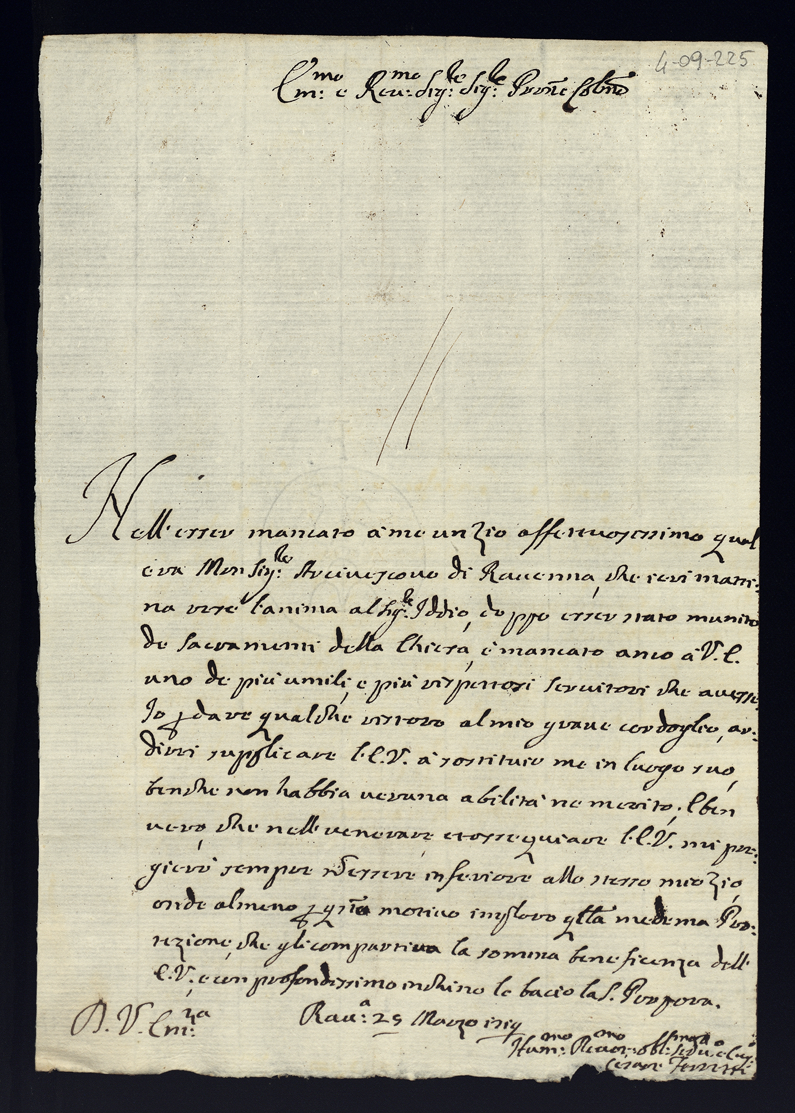 4-09-225
Em:mo e Reu:mo Sig:re Sig:re Pron̄e Colm̄o
Nell'esser mancato à me un Zio affettuosissimo qual
era Monsig:re Arciuescouo di Rauenna, che ieri matti-
na rese l'anima al Sig:re Iddio, doppo esser stato munito
de Sacramenti della Chiesa, è mancato anco à V. E.
uno de più umili, e più rispettosi seruitori che auesse.
Io p dare qualche ristoro al mio graue cordoglio, ar-
direi supplicare l'E. V. à sostituir me in luogo suo,
benche non habbia ueruna abilità ne merito; E ben
uero, che nell uenerare et ossequiare l'E. V. mi pre-
gierò sempre d'essere inferiore allo stesso mio Zio,
onde almeno p q̄sto motiuo imploro q̄lla medema Pro-
tezione, che gli compartiua la somma beneficenza dell'
E. V., e con profondissimo inchino le bacio la S. Porpora.
D. V. Em:za
Rau:a 25 Marzo
Hum:mo Deuot:mo obl:mo Ser:
Cesare